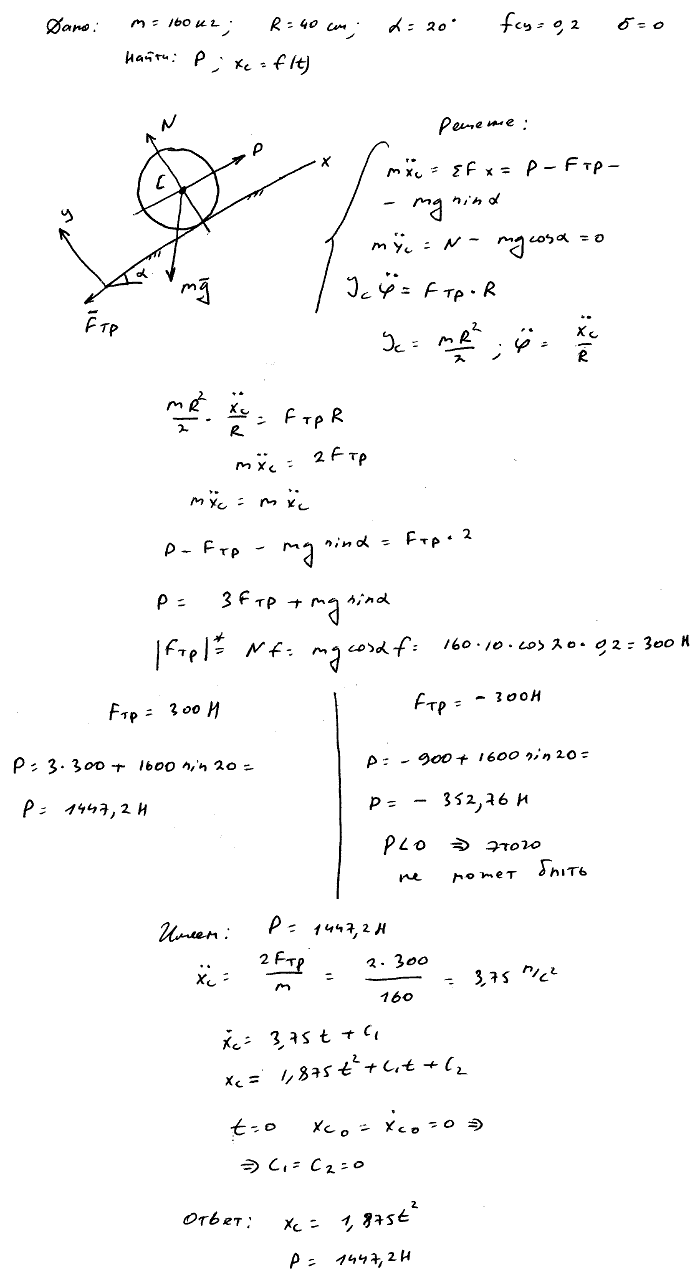 Дано: m = 160 кг; R = 40 cm; α = 20° fсц = 0,2 δ = 0
Найти: P; xc = f(t)
Решение:
N
P
x
C
y
α
mg̅
F̅тр
mẍc = ΣFx = P - Fтр -
- mg sinα
mÿc = N - mg cosα = 0
Jc φ̈ = Fтр · R
Jc = mR²/2 ; φ̈ = ẍc/R
mR²/2 · ẍc/R = Fтр R
mẍc = 2Fтр
mẍc = mẍc
P - Fтр - mg sinα = Fтр · 2
P = 3Fтр + mg sinα
|Fтр|* = Nf = mg cosα f = 160·10·cos20·0,2 = 300 Н
Fтр = 300 Н
P = 3·300 + 1600 sin20 =
P = 1447,2 Н
Fтр = -300 Н
P = -900 + 1600 sin20 =
P = - 352,76 Н
P<0 ⇒ этого
не может быть
Имеем: P = 1447,2 Н
ẍc = 2Fтр/m = 2·300/160 = 3,75 м/с²
ẋc = 3,75t + C₁
xc = 1,875t² + C₁t + C₂
t=0 xc₀ = ẋc₀ = 0 ⇒
⇒ C₁ = C₂ = 0
Ответ: xc = 1,875t²
P = 1447,2 Н